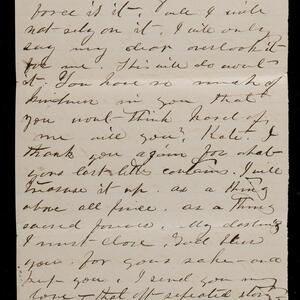 force is it. Well I will
not rely on it. I will only
say my dear overlook it
for me. This will do won't
it. You have so much of
kindness in you that
you wont think hard of
me will you? Kate I
thank you again for what
your last letter contains. I will
treasure it up. as a thing
above all price. as a thing
sacred forever. My darling
I must close. God bless
you. for your sake-
keep you. I send you my
love - that oft repeated story